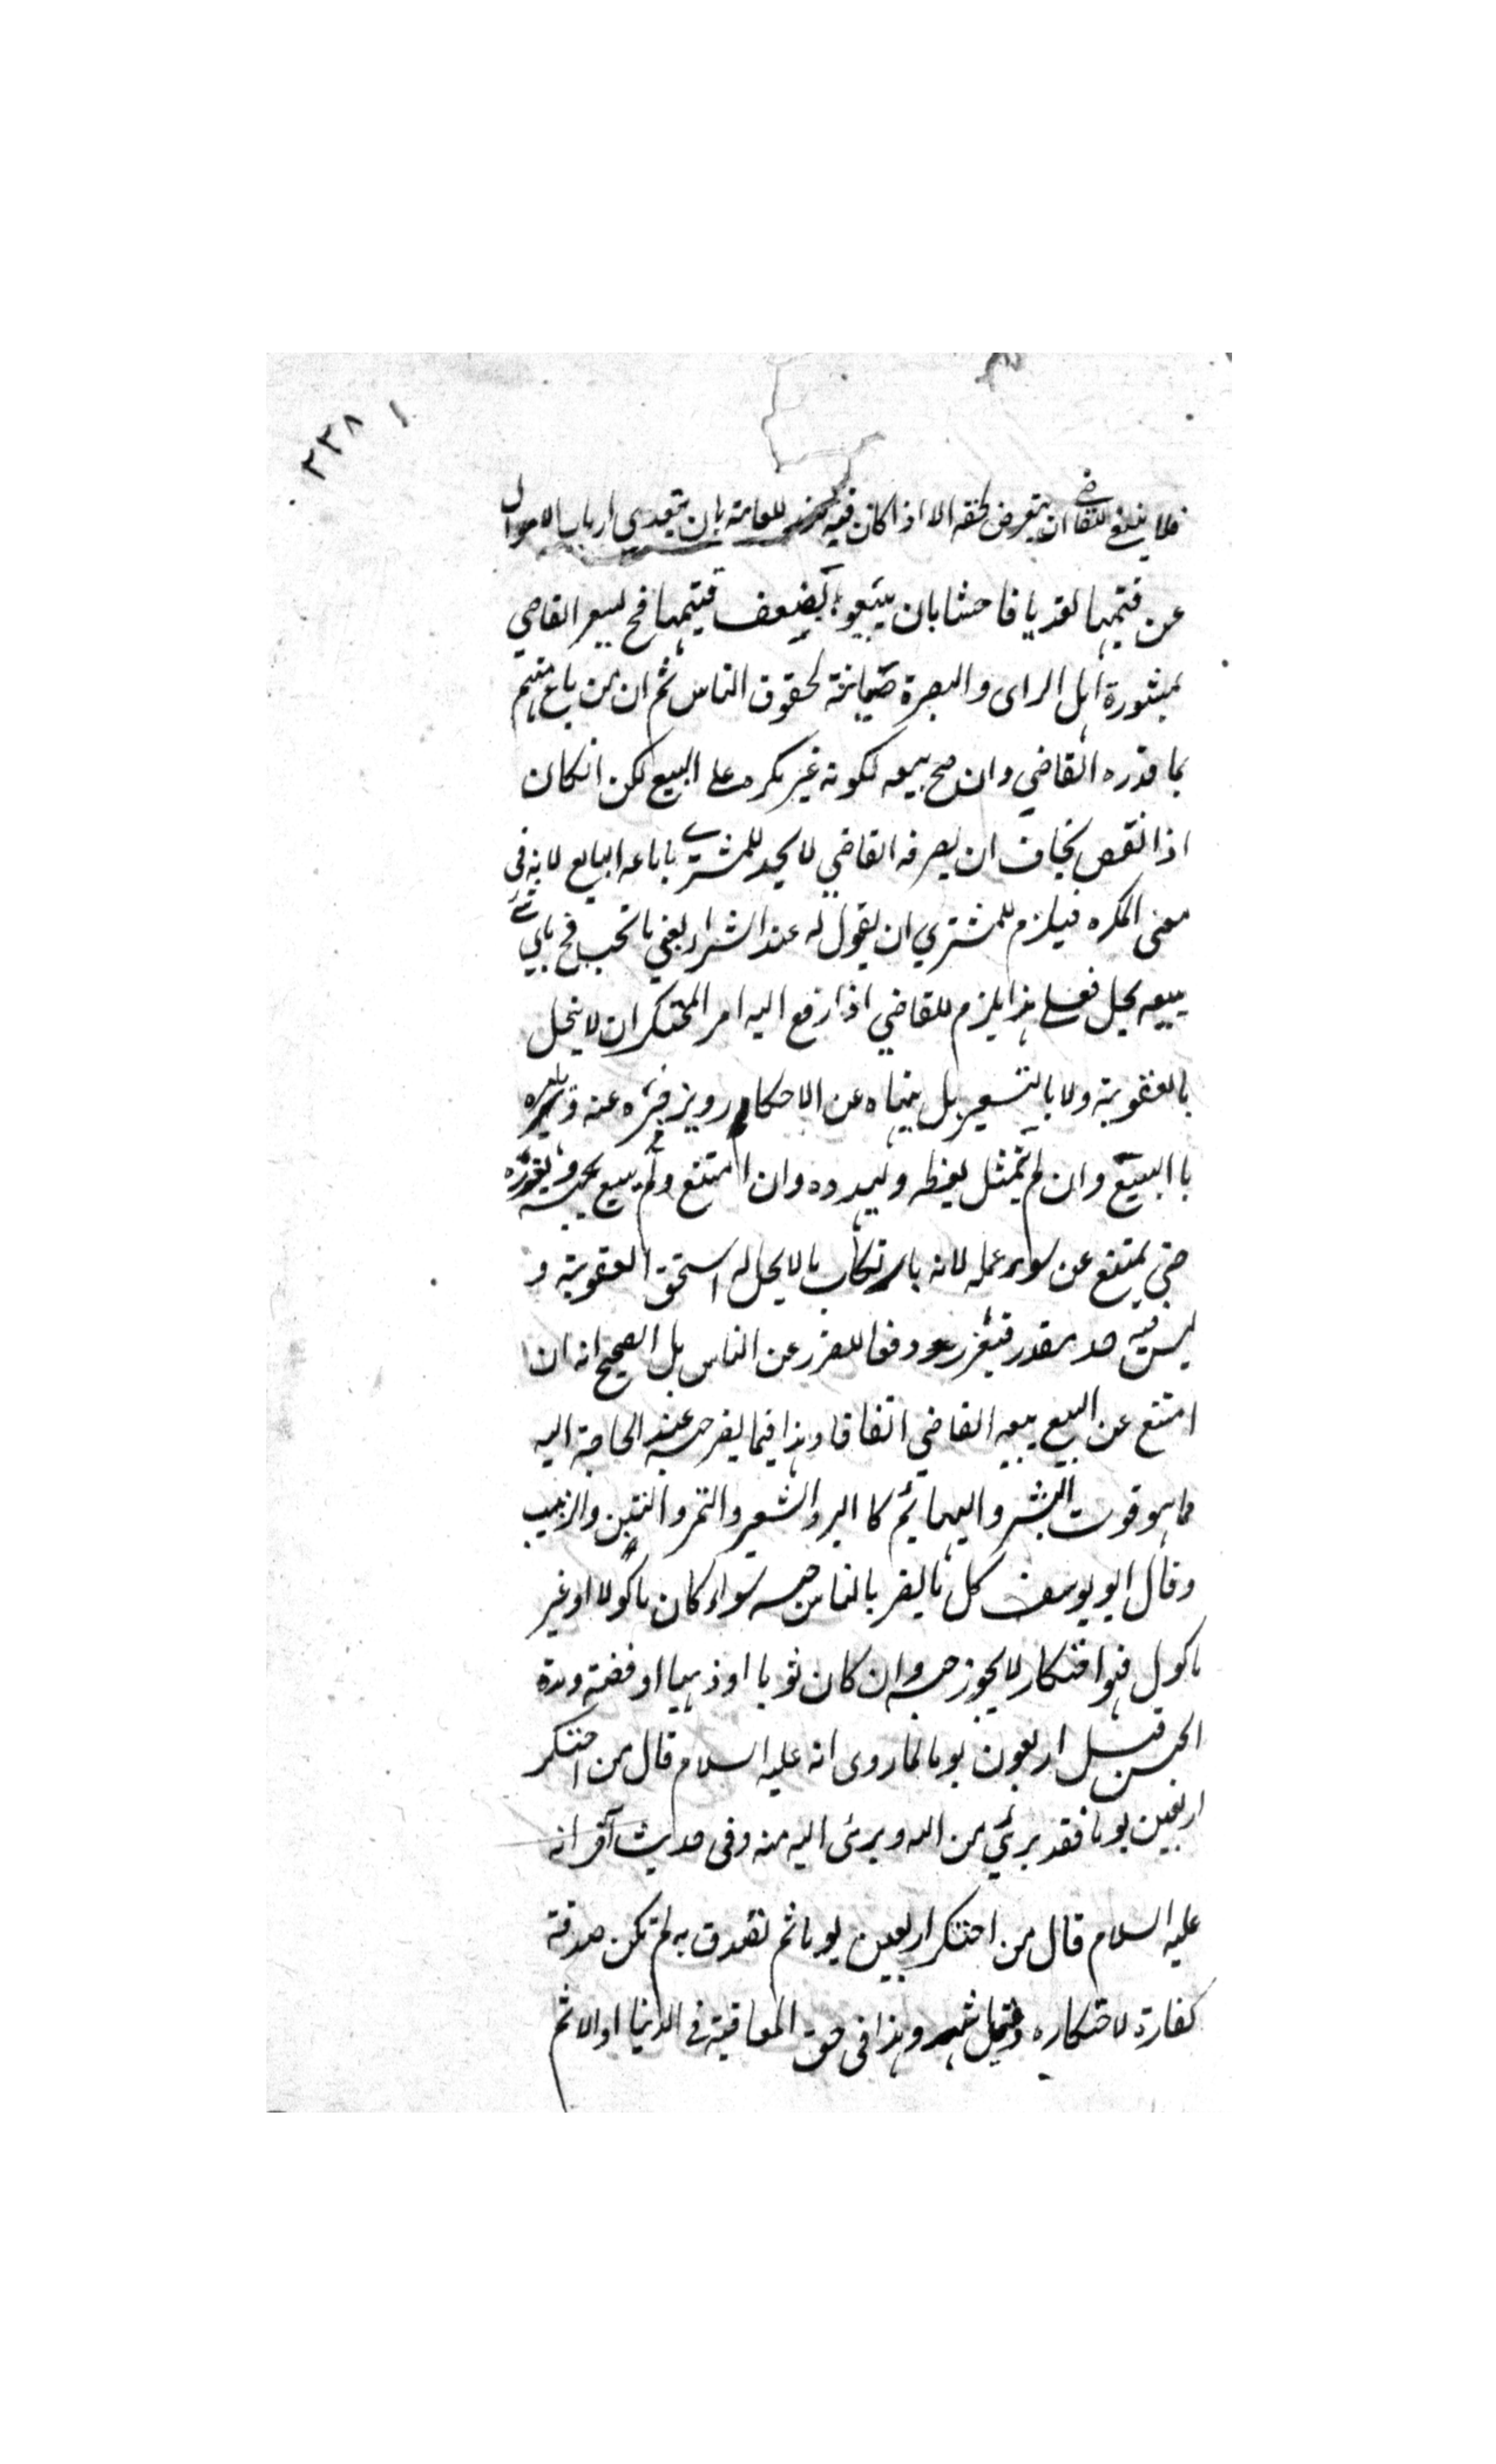 ٢٣٨
فلا ينبغي للقاضي ان يتعرض لحقه الا اذا كان فيه ضرر للعامة بان يتعدى ارباب الاموال
عن قيمتها تعديا فاحشا بان يبيعوا بضعف قيمتها فح يسعر القاضي
بمشورة اهل الراى والبصرة صيانة لحقوق الناس ثم ان من باع منهم
بما قدره القاضي وان صح بيعه لكونه غير مكره على البيع لكن انكان
اذا نقص يخاف ان يضربه القاضي لا يحل للمشترى ما باعه البايع لانه فى
معنى المكره فيلزم للمشتري ان يقول له عند الشراء بعني ما تحب فح باي شئ
يبيعه يحل فعلى هذا يلزم للقاضي اذا رفع اليه امر المحتكر ان لا يعجل
بالعقوبة ولا بالتسعير بل ينهاه عن الاحتكار ويزجره عنه ويامره
با البيع وان لم يمتثل يعظه ويهدده وان امتنع ولم يبيع يحبسه ويعزره
حتى يمتنع عن سوء عمله لانه بارتكاب ما لا يحل له استحق العقوبة و
ليس فيه حد مقدر فيعزر دفعا للضرر عن الناس بل الصحيح انه ان
امتنع عن البيع يبيعه القاضي اتفاقا وهذا فيما يضر حبسه عند الحاجة اليه
مما هو قوت البشر والبهائم كا البر والشعير والتمر والتين والزبيب
وقال ابو يوسف كل ما يضر بالناس حبسه سواء كان ماكولا او غير
ماكول فهو احتكار لا يجوز حبسه وان كان ثوبا او ذهبا او فضة ومدة
الحبس قيل اربعون يوما لما روى انه عليه السلام قال من احتكر
اربعين يوما فقد برئ من الله وبرئ الله منه وفى حديث آخر انه
عليه السلام قال من احتكر اربعين يوما ثم تصدق به لم تكن صدقة
كفارة لاحتكاره وقيل شهر وهذا فى حق المعاقبة فى الدنيا اما الاثم